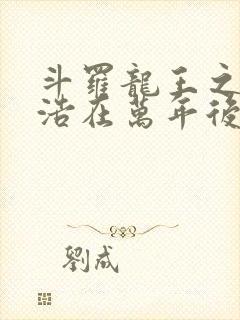 斗羅龍王之
浩在萬年後
劉成